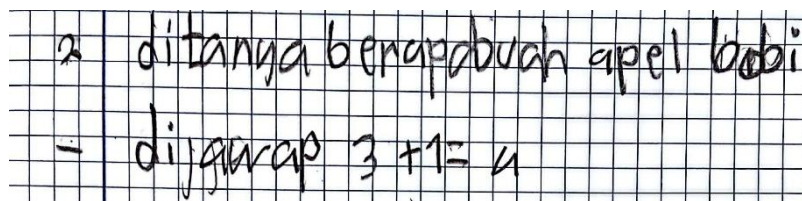 2 ditanya berapa buah apel bobi
- dijawab 3 + 1 = 4